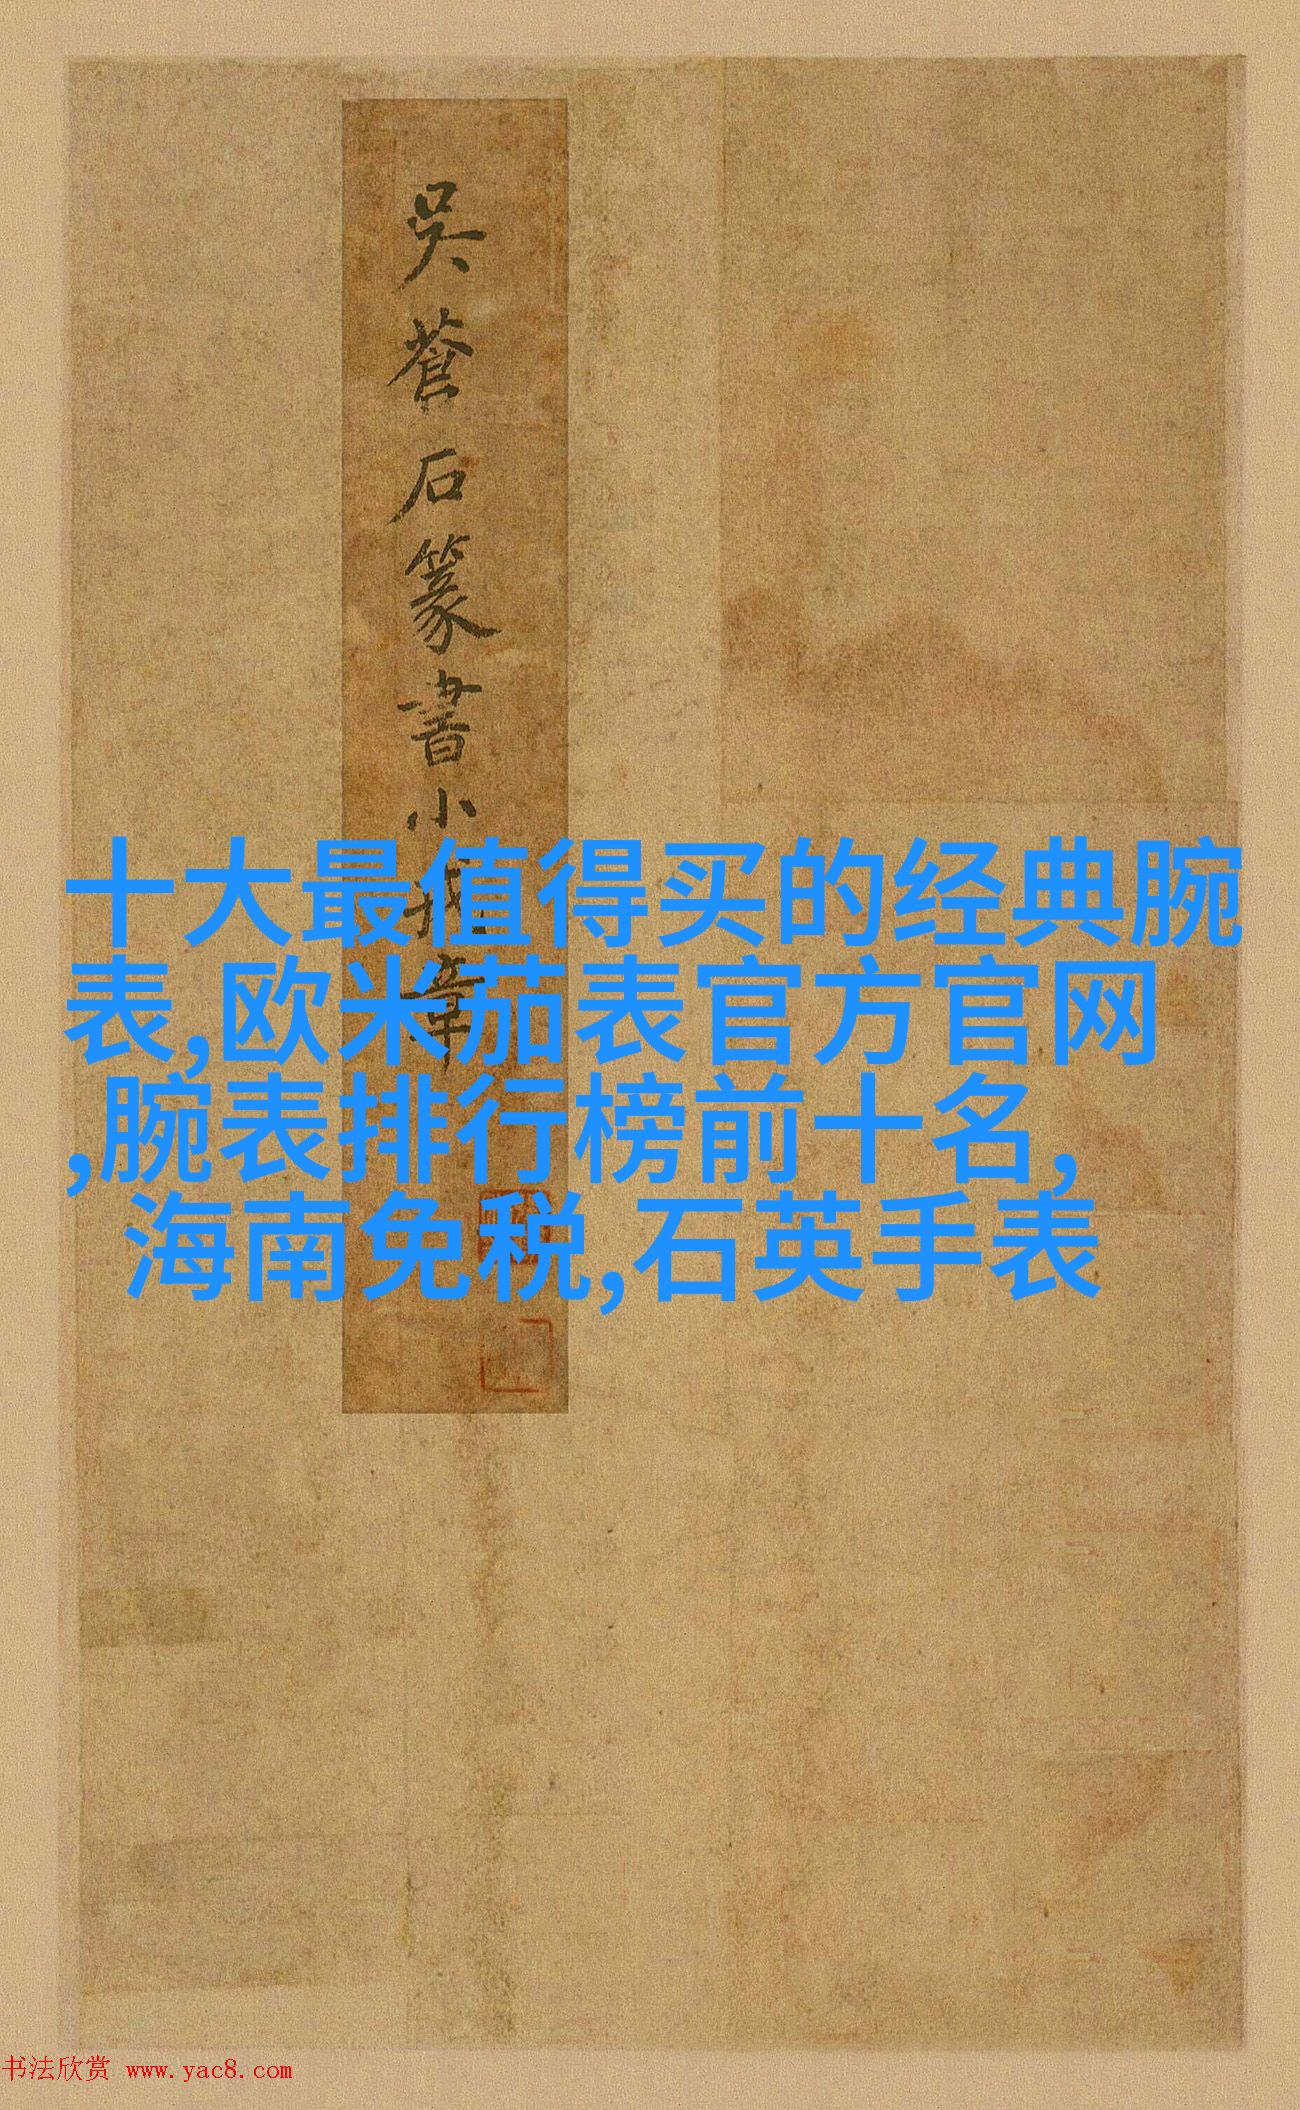 吳蒼石篆書小戎章
十大最值得买的经典腕
表,欧米茄表官方官网
,腕表排行榜前十名,
海南免税,石英手表
书法欣赏 www.yac8.com